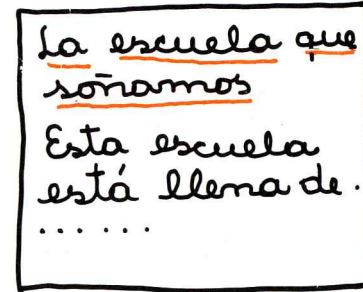 La escuela que
soñamos
Esta escuela
está llena de .
......